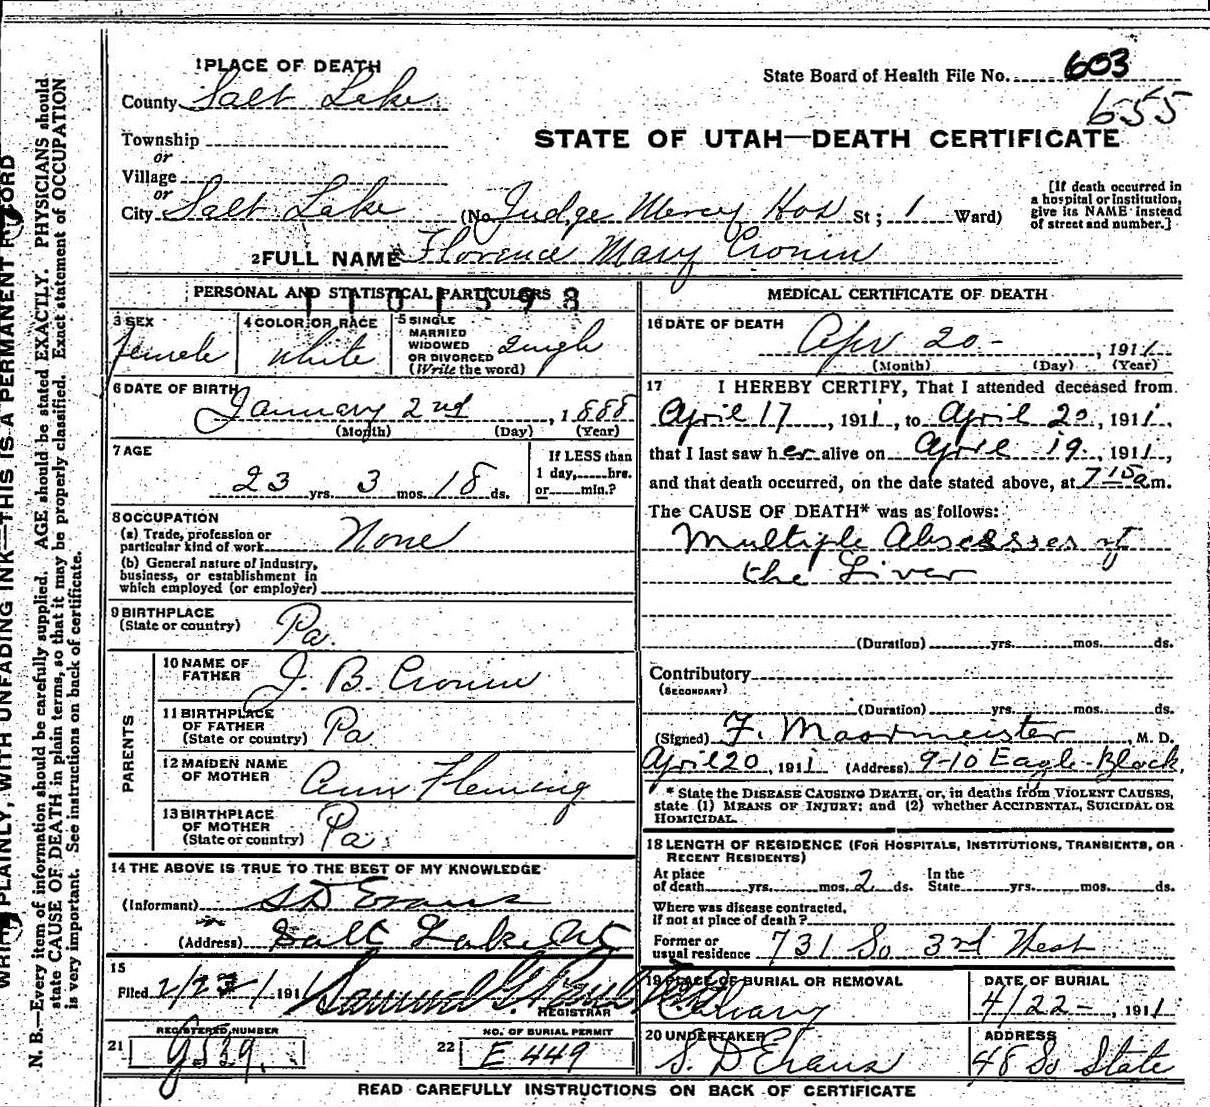 WRITE PLAINLY, WITH UNFADING INK—THIS IS A PERMANENT RECORD
N. B.—Every item of information should be carefully supplied. AGE should be stated EXACTLY. PHYSICIANS should
state CAUSE OF DEATH in plain terms, so that it may be properly classified. Exact statement of OCCUPATION
is very important. See instructions on back of certificate.
1 PLACE OF DEATH
County Salt Lake
Township
or
Village
or
City Salt Lake (No. Judge Mercy Hos St; 1 Ward)
State Board of Health File No. 603
655
STATE OF UTAH—DEATH CERTIFICATE
[If death occurred in
a hospital or institution,
give its NAME instead
of street and number.]
2 FULL NAME Florence Mary Cronin
PERSONAL AND STATISTICAL PARTICULARS
3 SEX
Female
4 COLOR OR RACE
White
5 SINGLE
MARRIED
WIDOWED
OR DIVORCED
(Write the word)
Single
6 DATE OF BIRTH
January 2nd, 1888
(Month) (Day) (Year)
7 AGE
23 yrs. 3 mos. 18 ds.
If LESS than
1 day,......hrs.
or......min.?
8 OCCUPATION
(a) Trade, profession or
particular kind of work None
(b) General nature of industry,
business, or establishment in
which employed (or employer)
9 BIRTHPLACE
(State or country) Pa.
PARENTS
10 NAME OF
FATHER J. B. Cronin
11 BIRTHPLACE
OF FATHER
(State or country) Pa
12 MAIDEN NAME
OF MOTHER Ann Fleming
13 BIRTHPLACE
OF MOTHER
(State or country) Pa.
14 THE ABOVE IS TRUE TO THE BEST OF MY KNOWLEDGE
(Informant) S D Evans
(Address) Salt Lake
15
Filed 191
REGISTRAR
REGISTERED NUMBER
21 G539.
NO. OF BURIAL PERMIT
22 E 449
MEDICAL CERTIFICATE OF DEATH
16 DATE OF DEATH
Apr 20 - , 1911
(Month) (Day) (Year)
17 I HEREBY CERTIFY, That I attended deceased from
April 17, 1911, to April 20, 1911,
that I last saw her alive on April 19, 1911,
and that death occurred, on the date stated above, at 7 15 a.m.
The CAUSE OF DEATH* was as follows:
Multiple Abscesses of
the Liver
(Duration) yrs. mos. ds.
Contributory
(SECONDARY)
(Duration) yrs. mos. ds.
(Signed) F. Moormeister, M. D.
April 20, 1911 (Address) 9-10 Eagle-Block,
* State the DISEASE CAUSING DEATH, or, in deaths from VIOLENT CAUSES,
state (1) MEANS OF INJURY; and (2) whether ACCIDENTAL, SUICIDAL OR
HOMICIDAL.
18 LENGTH OF RESIDENCE (FOR HOSPITALS, INSTITUTIONS, TRANSIENTS, OR
RECENT RESIDENTS)
At place
of death yrs. mos. 2 ds.
In the
State yrs. mos. ds.
Where was disease contracted,
if not at place of death?
Former or
usual residence 731 So 3rd West
19 PLACE OF BURIAL OR REMOVAL
Calvary
DATE OF BURIAL
4/22 - , 1911
20 UNDERTAKER
S. D Evans
ADDRESS
48 So State
READ CAREFULLY INSTRUCTIONS ON BACK OF CERTIFICATE